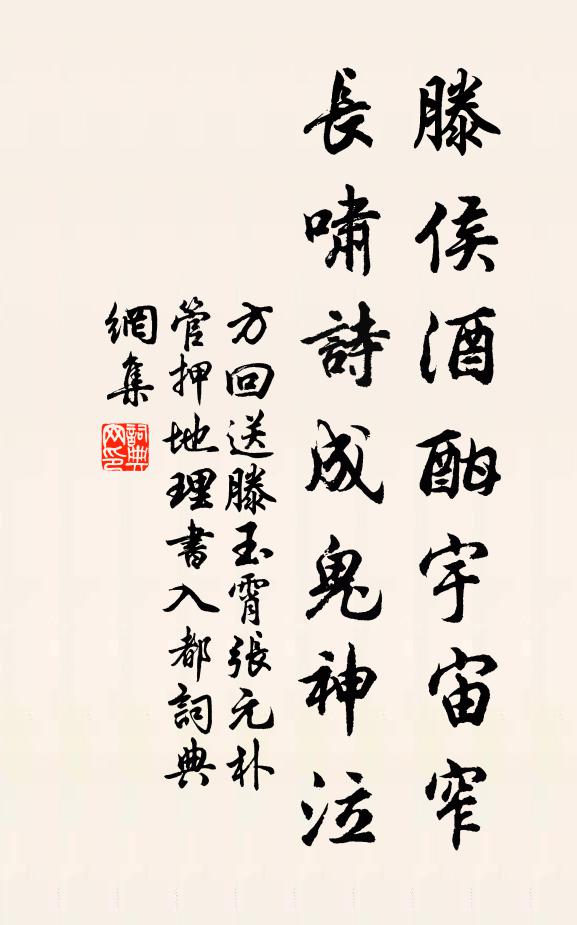 滕侯酒酣宇宙窄
長嘯詩成鬼神泣
方回送滕玉霄張元朴
管押地理書入都詞典
網集
詞典網印